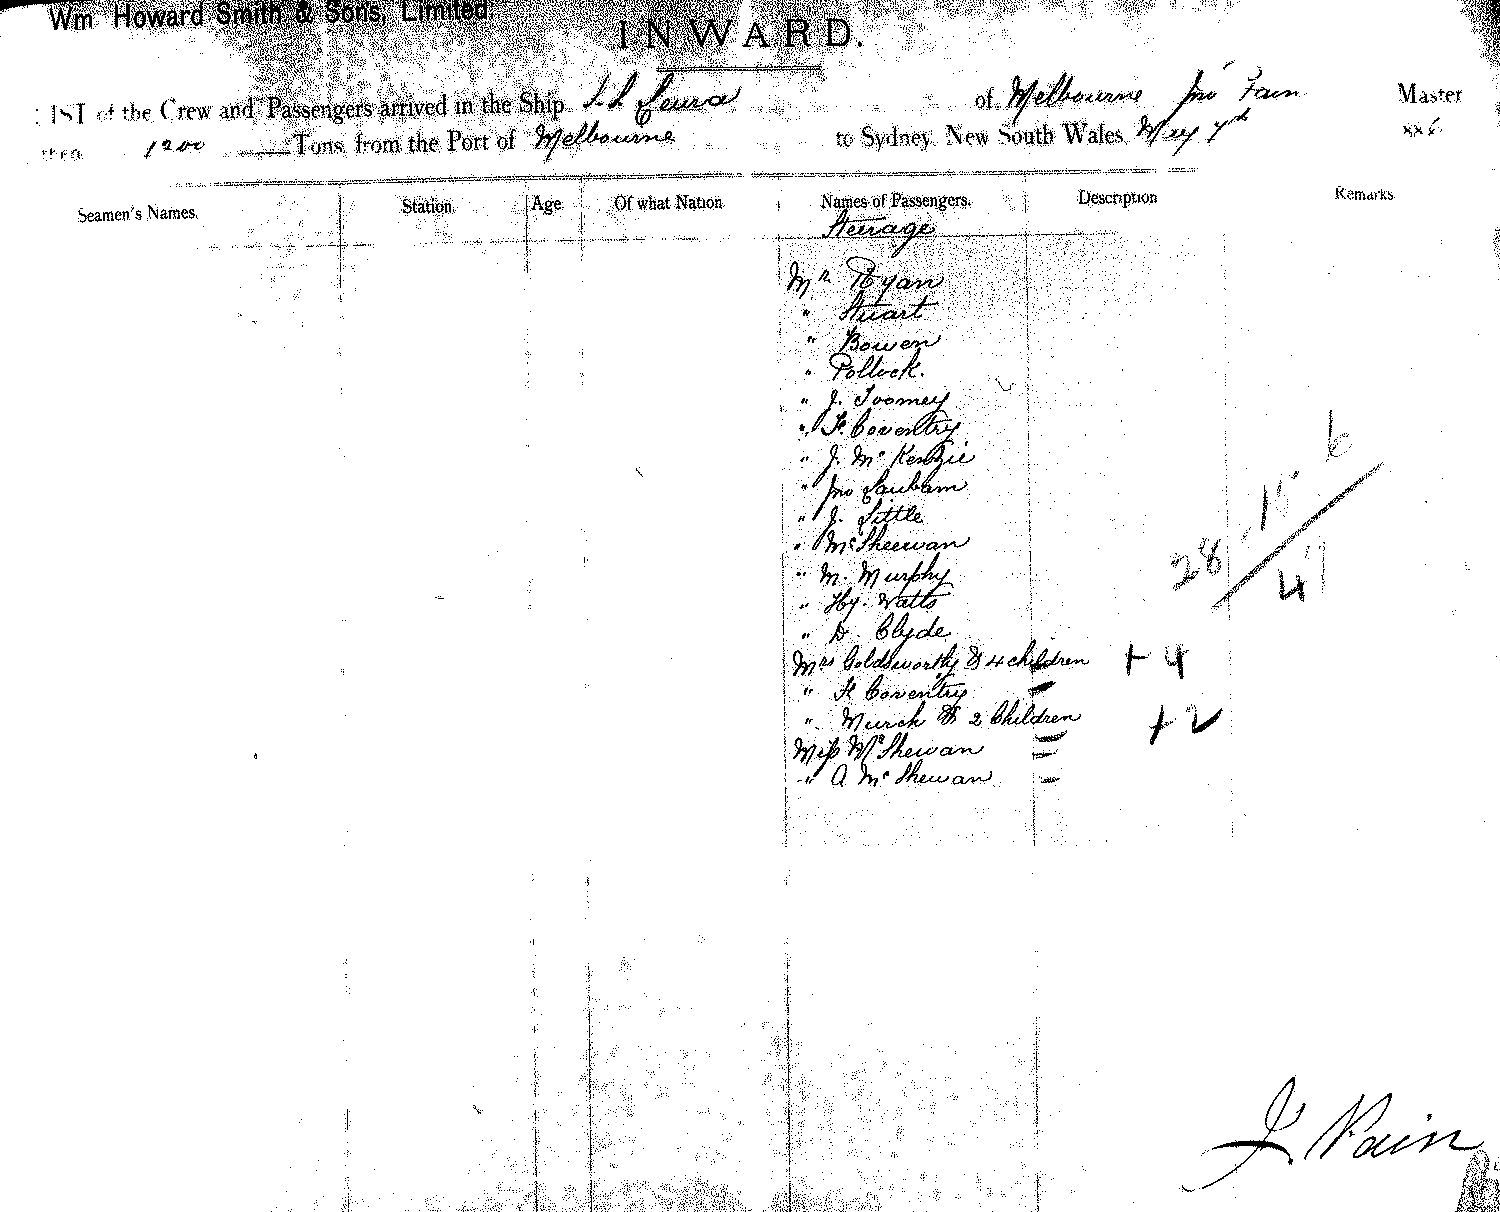 Wm Howard Smith & Sons, Limited.
INWARD.
LIST of the Crew and Passengers arrived in the Ship S.S. Leura of Melbourne Jno Fain Master
1200 Tons, from the Port of Melbourne to Sydney, New South Wales, May 7th 886
Seamen's Names. Station Age Of what Nation Names of Passengers. Description Remarks
Steerage
Mr Ryan
" Stuart
" Bowen
" Pollock.
" J. Toomey
" F. Coventry
" J. McKenzie
" Jno Laubam
" J. Little
" McSheewan
" M. Murphy
" Hy. Watts
" D. Clyde
Mrs Goldsworthy & 4 children + 4
" F. Coventry
" Murch & 2 Children + 2
Miss McShewan
" A McShewan
28 15
4
J Pain